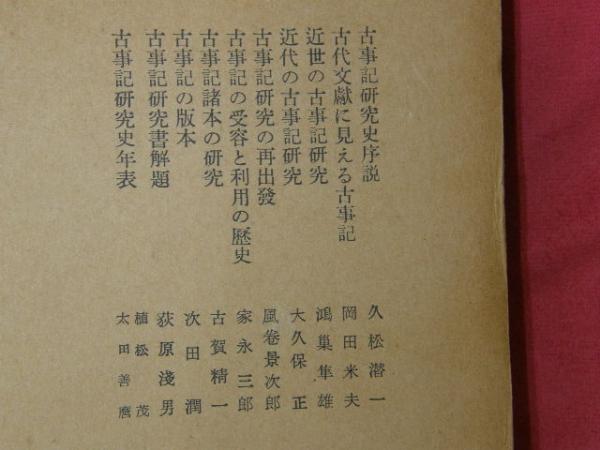 古事記研究史序説 久松潜一
古代文獻に見える古事記 岡田米夫
近世の古事記研究 鴻巣隼雄
近代の古事記研究 大久保正
古事記研究の再出發 風卷景次郎
古事記の受容と利用の歷史 家永三郎
古事記諸本の研究 古賀精一
古事記の版本 次田潤
古事記研究書解題 荻原淺男
古事記研究史年表 植松茂
太田善麿